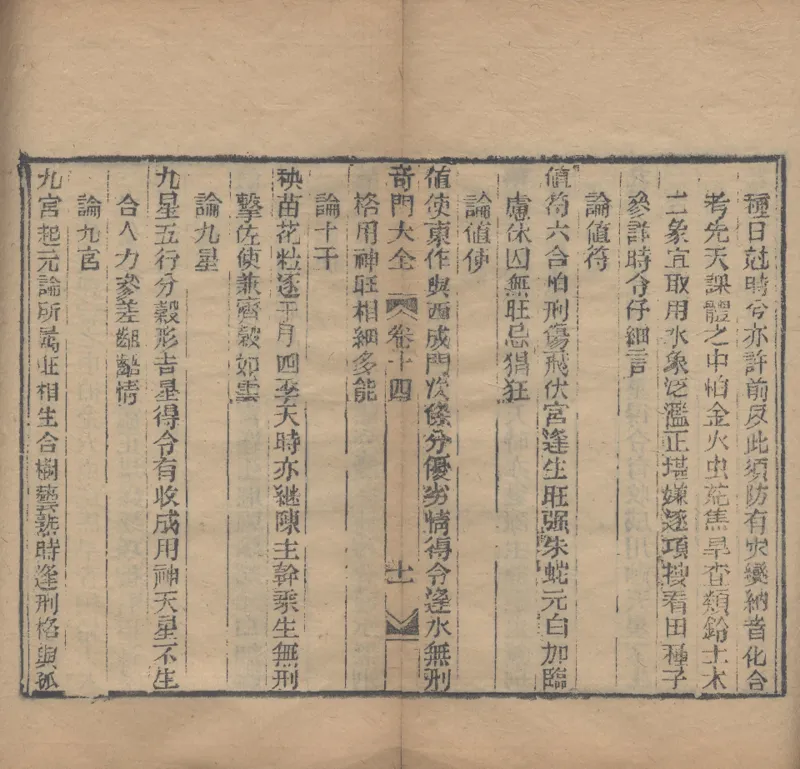 種日尅時兮亦許前反此須防有灾變納音化合
考先天課體之中怕金火虫荒焦旱查類鈴土木
二象宜取用水象泛濫正堪嫌逐項搜看田種子
參詳時令仔細言
論值符
值符六合怕刑傷飛伏宮逢生旺强朱蛇元白加臨
慮休囚無旺忌猖狂
論值使
值使東作與西成門次條分優劣情得令逢水無刑
奇門大全 卷十四 十一
格用神旺相細多能
論十干
秧苗花粒逐干月四季天時亦継陳主幹乘生無刑
擊佐使兼齊穀如雲
論九星
九星五行分穀形吉星得令有收成用神天星不生
合人力參差齟齬情
論九宮
九宮起元論所萬旺相生合樹藝蒸時逢刑格與孤